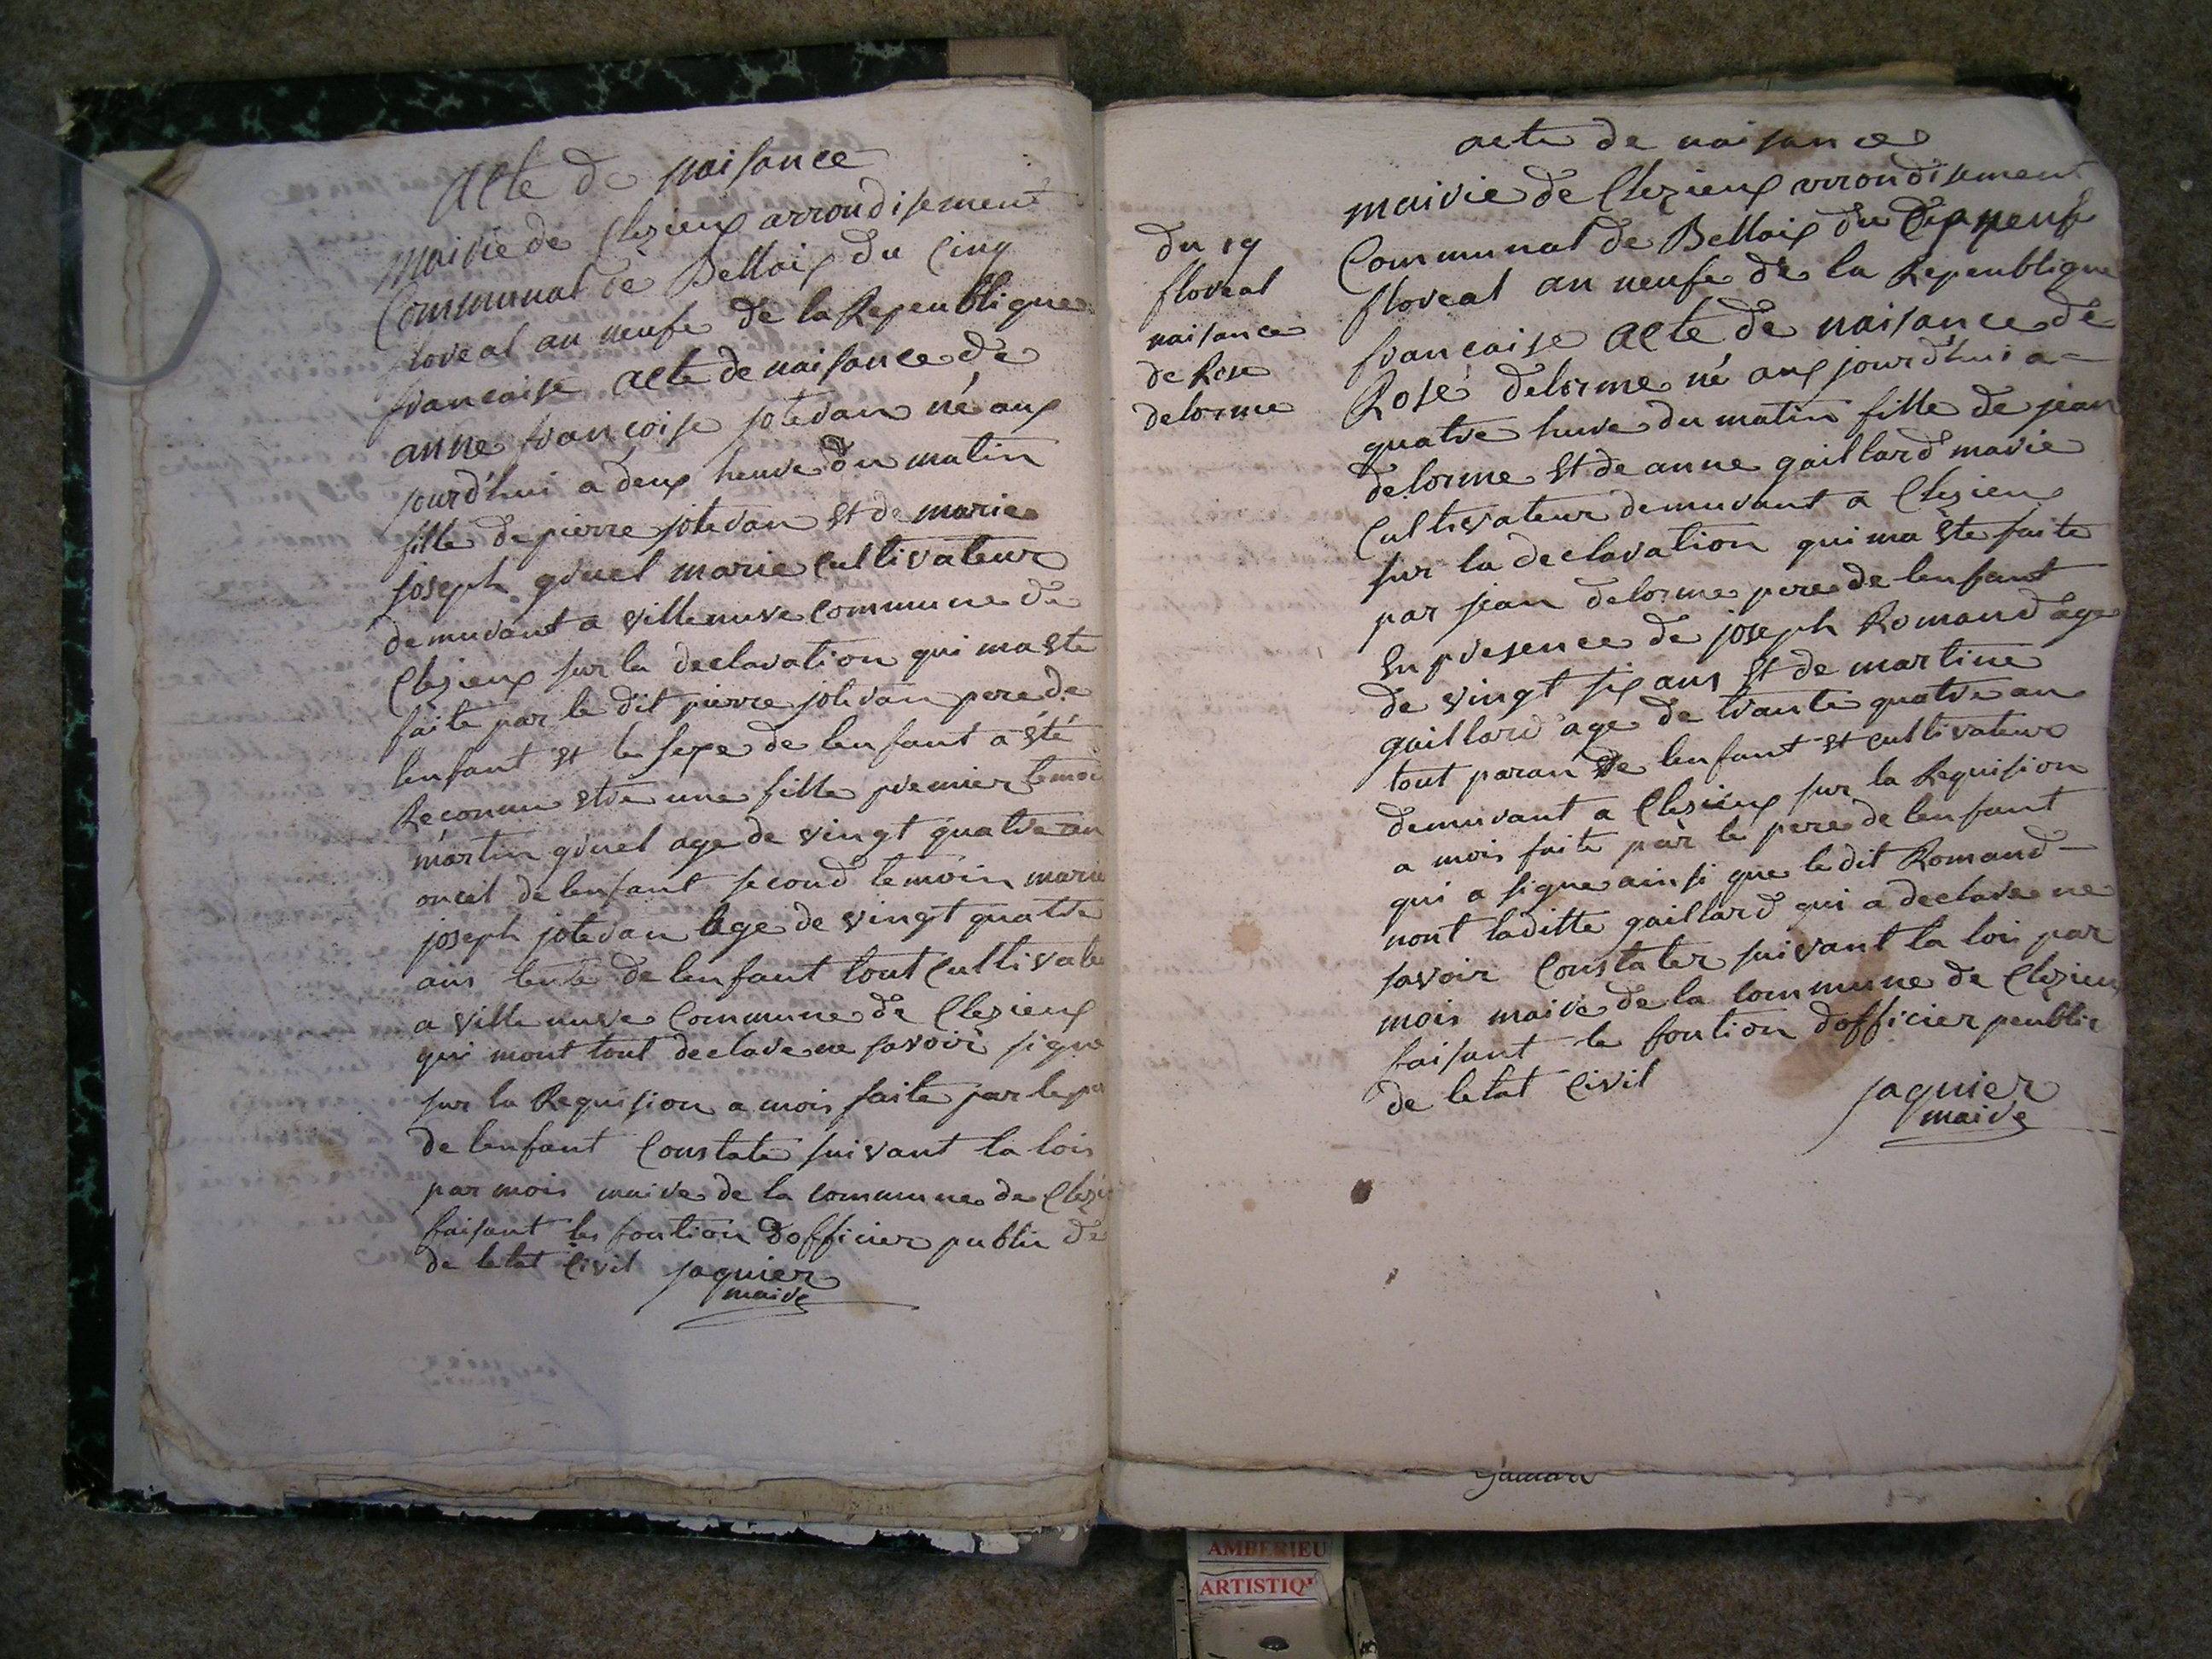 Acte de naisance
mairie de Clezieux arrondisement
Communal de Bellaix du Cinq
floreal an neufe de la Repeublique
francaise acte de naisance de
anne françoise joteran né aux
jourd'hui a deux heure du matin
fille de pierre joteran et de marie
joseph gruel marie cultivateur
demurant a villenuve commune de
Clezieux sur la declaration qui ma ete
faite par le dit pierre joteran pere de
lenfant et le sexe de lenfant a été
Reconnu etre une fille premier temoi
martin gruel age de vingt quatre an
oncel de lenfant second temoin marie
joseph joteran age de vingt quatre
ans tente de lenfant tout cultivate
a villenuve Commune de Clezieux
qui mont tout declare ne savoir signe
sur la Requision a mois faite par le pe
de lenfant Constate suivant la lois
par mois maire de la commune de Clezi
faisant les fontion dofficier public de
de letat Civil jaquier
maire
acte de naisance
mairie de Clezieux arrondisement
Communal de Bellaix du Dix neufe
floreal an neufe de la Repeublique
francaise acte de naisance de
Rose delorme né aux jourd'hui a
quatre hure du matin fille de jean
delorme et de anne gaillard marie
Cultivateur demurant a Clezieu
sur la declaration qui ma ete faite
par jean delorme pere de lenfant
en presence de joseph Romand age
de vingt six ans et de martine
gaillard age de trante quatre an
tout paran de lenfant et cultivateur
demurant a Clezieux sur la Requision
a mois faite par le pere de lenfant
qui a signe ainsi que le dit Romand
nont laditte gaillard qui a declare ne
savoir Constater suivant la lois par
mois maire de la commune de Clezieu
faisant le fontion dofficier peublic
de letat Civil
jaquier
maire
du 19
floreal
naisance
de Rose
delorme
AMBERIEU
ARTISTIQ